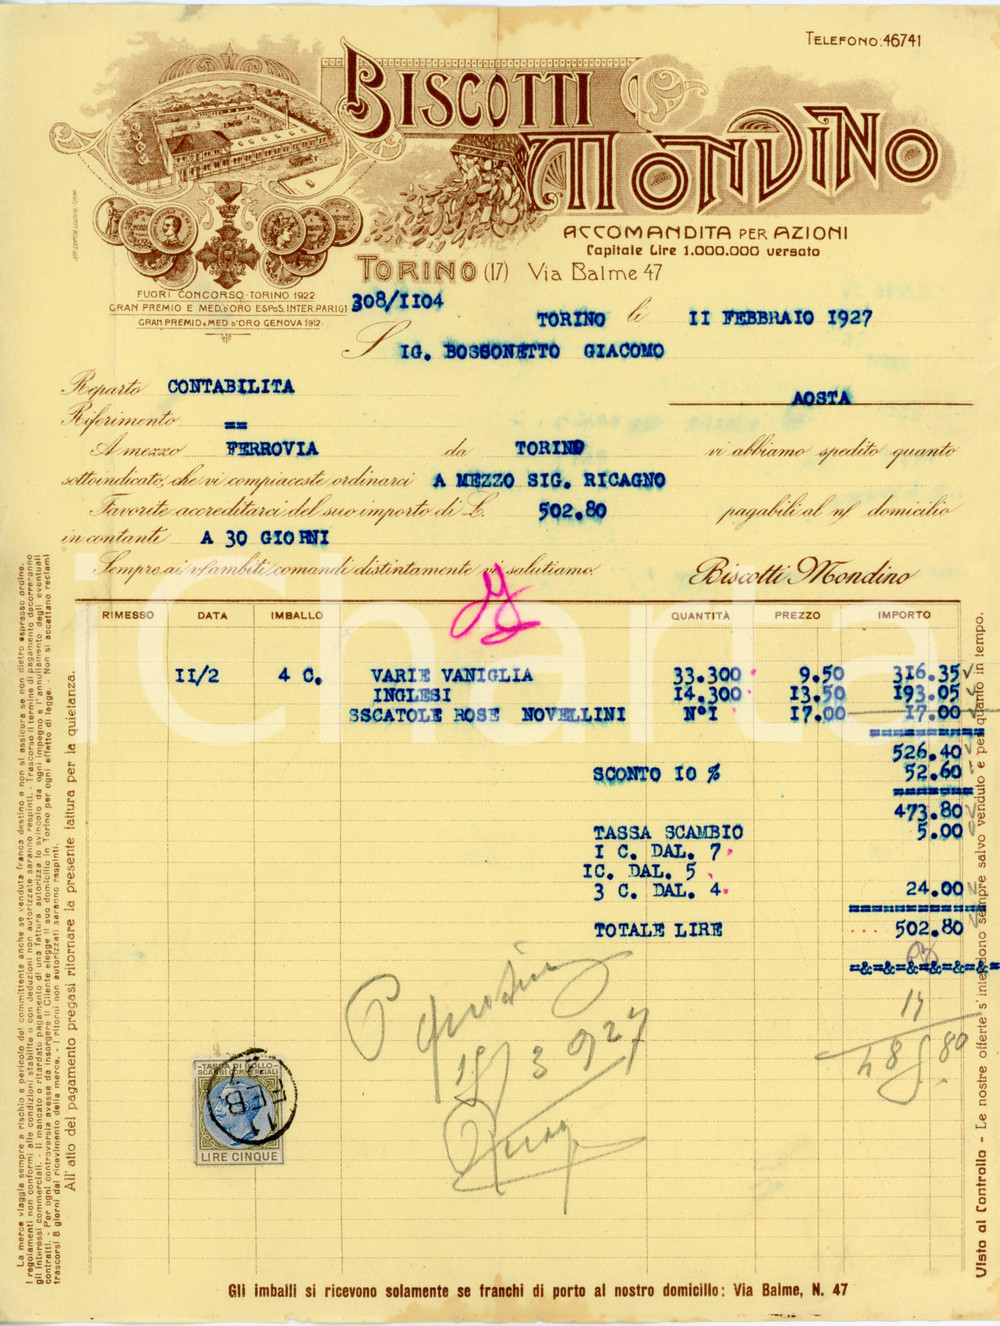 TELEFONO: 46741
BISCOTTI
MONDINO
ACCOMANDITA PER AZIONI
Capitale Lire 1.000.000 versato
TORINO (17) Via Balme 47
FUORI CONCORSO-TORINO 1922
GRAN PREMIO E MED. D'ORO ESPOS. INTER. PARIGI
GRAN PREMIO & MED D'ORO GENOVA 1912
308/II04
TORINO li II FEBBRAIO I927
SIG. BOSSONETTO GIACOMO
Reparto CONTABILITA
AOSTA
Riferimento ==
A mezzo FERROVIA da TORINO vi abbiamo spedito quanto
sottoindicato, che vi compiaceste ordinarci A MEZZO SIG. RICAGNO
Favorite accreditarci del suo importo di L. 502.80 pagabili al n/ domicilio
in contanti A 30 GIORNI
Sempre ai v/ambiti comandi distintamente vi salutiamo. Biscotti Mondino
RIMESSO DATA IMBALLO QUANTITÀ PREZZO IMPORTO
II/2 4 C. VARIE VANIGLIA 33.300 9.50 316.35
INGLESI 14.300 13.50 193.05
SSCATOLE ROSE NOVELLINI N°I 17.00 17.00
==========
526.40
SCONTO IO % 52.60
=======
473.80
TASSA SCAMBIO 5.00
I C. DAL. 7
IC. DAL. 5
3 C. DAL. 4. 24.00
============
TOTALE LIRE 502.80
=&=&=&=&=&=&=
17
485.80
15/3 927
TASSA DI BOLLO
SCAMBI COMMERCIALI
11 FEB
LIRE CINQUE
Gli imballi si ricevono solamente se franchi di porto al nostro domicilio: Via Balme, N. 47
La merce viaggia sempre a rischio e pericolo del committente anche se venduta franca destino e non si assicura se non dietro espresso ordine.
I regolamenti non conformi alle condizioni stabilite o con deduzioni non autorizzate saranno respinti. - Trascorso il termine di pagamento decorreranno
gli interessi commerciali. - Il mancato o ritardato pagamento di una fattura autorizza lo svincolo da ogni impegno e l'annullamento degli eventuali
contratti. - Per ogni controversia avesse da insorgere il Cliente elegge il suo domicilio in Torino per ogni effetto di legge. - Non si accettano reclami
trascorsi 8 giorni dal ricevimento della merce. - I ritorni non autorizzati saranno respinti.
All'atto del pagamento pregasi ritornare la presente fattura per la quietanza.
Visto al Controllo - Le nostre offerte s'intendono sempre salvo venduto e per quanto in tempo.
iCharta